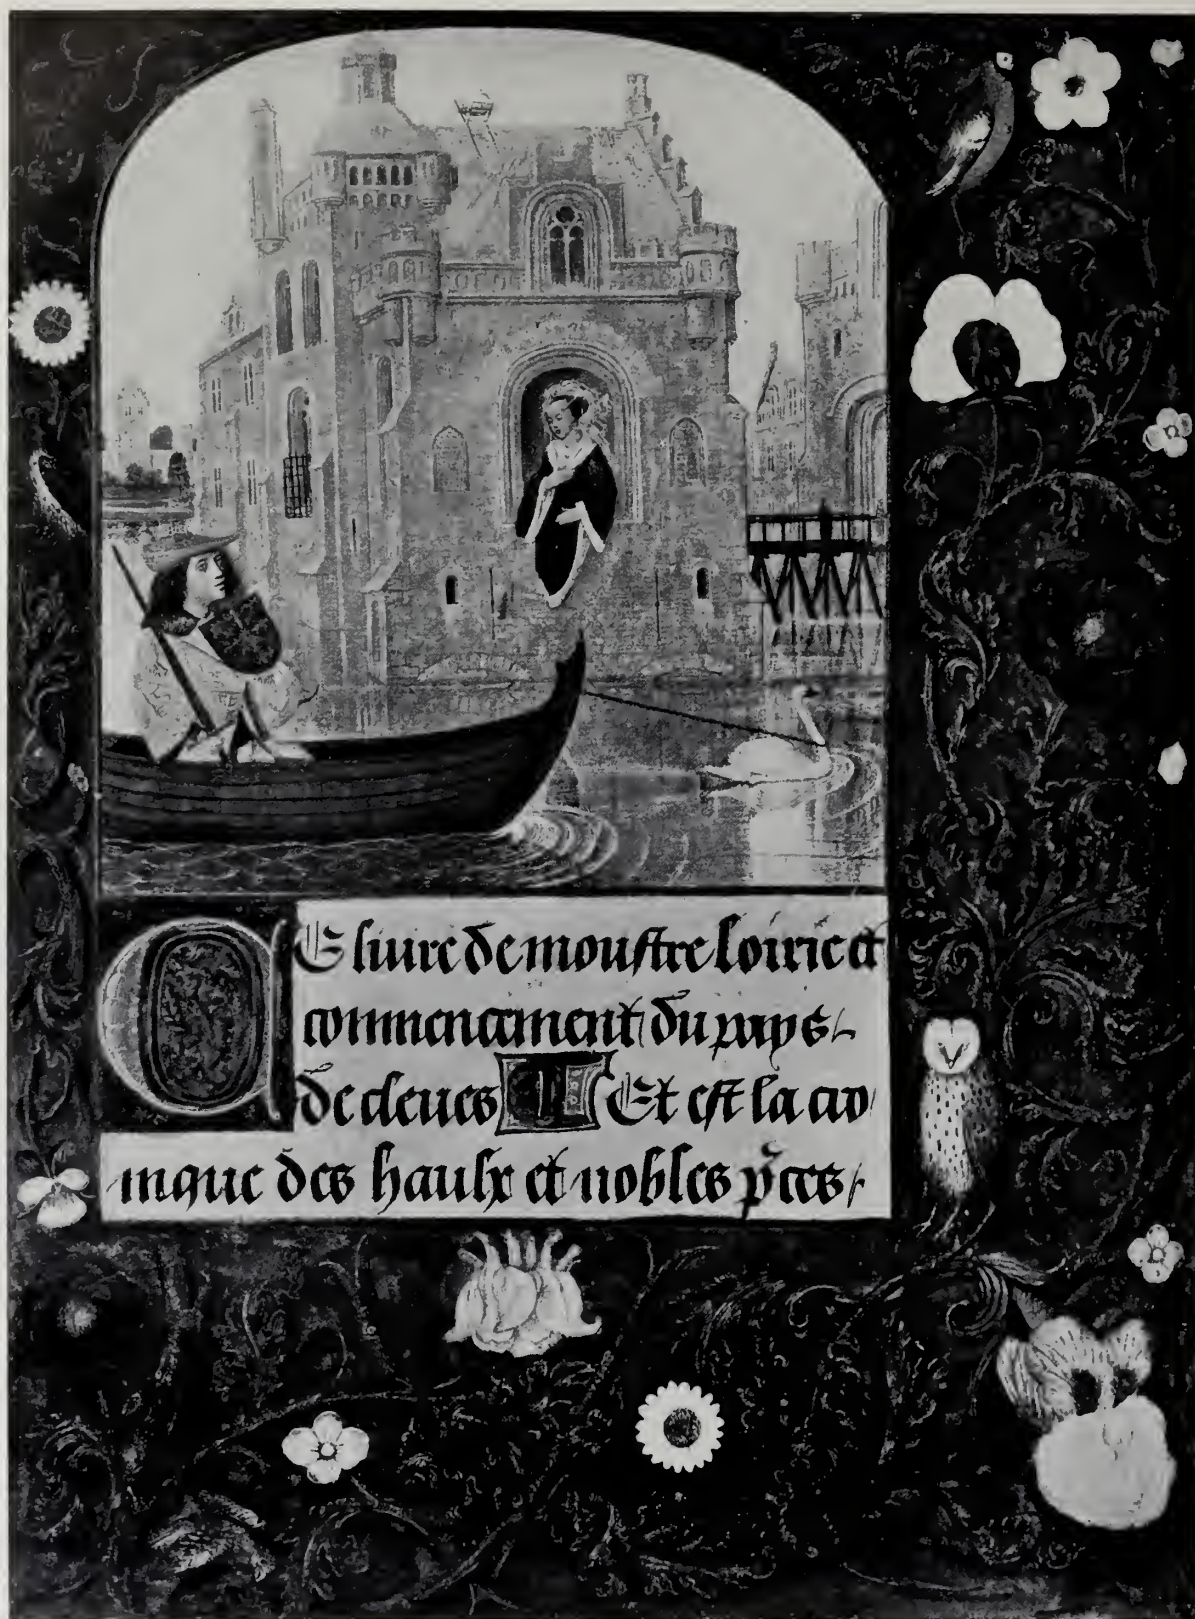 CE liure demoustre lorine et
commencement du pays
de cleues Et est la cro
nique des haulx et nobles pͥces